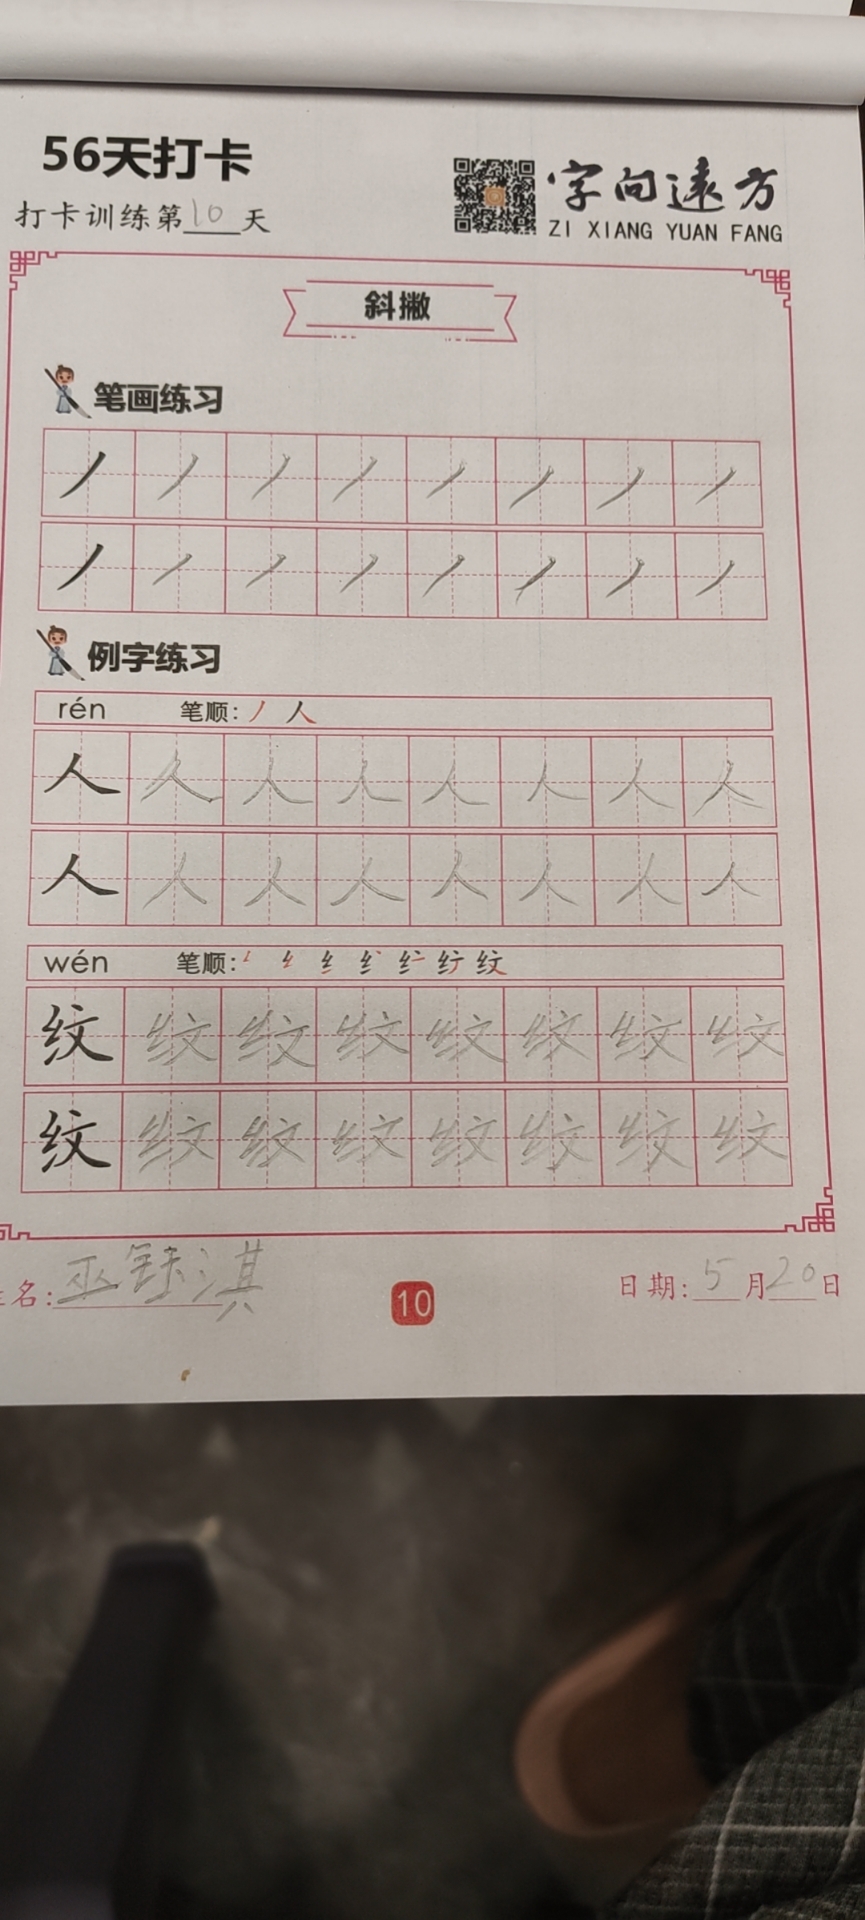 56天打卡
打卡训练第10天
字向远方
ZI XIANG YUAN FANG
斜撇
笔画练习
丿丿丿丿丿丿丿丿
丿丿丿丿丿丿丿丿
例字练习
rén 笔顺:丿 人
人人人人人人人人
人人人人人人人人
wén 笔顺: 纹
纹纹纹纹纹纹纹纹
纹纹纹纹纹纹纹纹
名:巫 淇
10
日期:5月20日